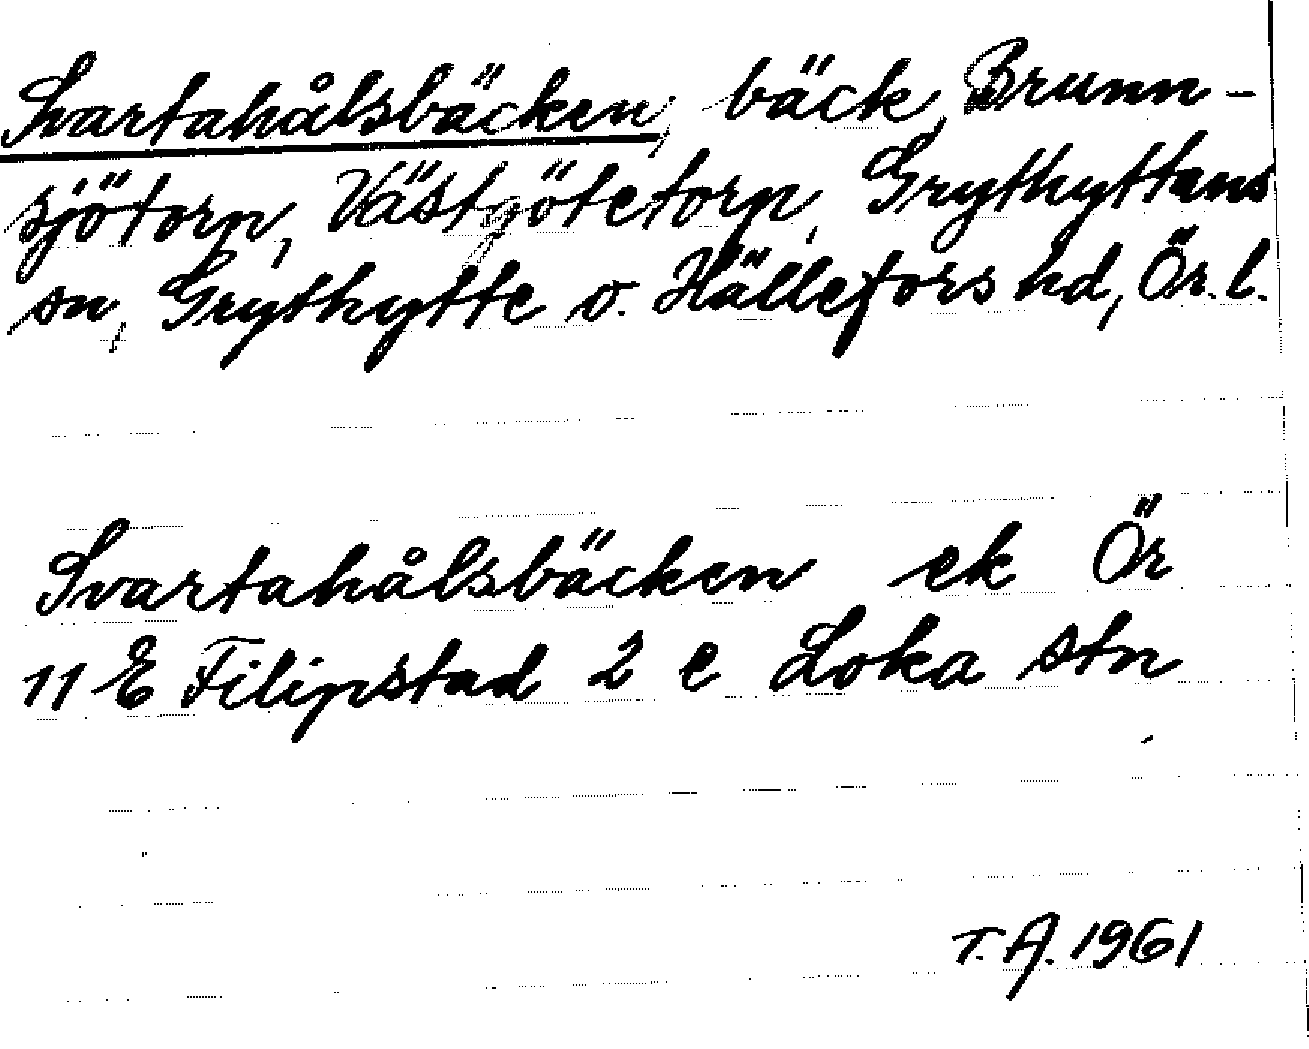 Svartahålsbäcken, bäck, Brunn-
sjötorp, Västgötetorp, Grythyttans
sn, Grythytte o. Hällefors hd, Ör. l.
Svartahålsbäcken ek Ör
11 E Filipstad 2 e Loka stn
T. A. 1961